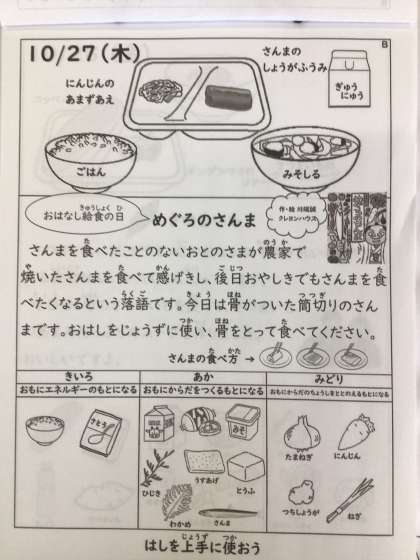 10/27(木)
B
さんまの
しょうがふうみ
にんじんの
あまずあえ
ぎゅう
にゅう
ごはん
みそしる
おはなし給食の日
めぐろのさんま
作・絵 川端誠
クレヨンハウス
さんまを食べたことのないおとのさまが農家で
焼いたさんまを食べて感げきし、後日おやしきでもさんまを食
べたくなるという落語です。今日は骨がついた筒切りのさん
まです。おはしをじょうずに使い、骨をとって食べてください。
さんまの食べ方→
きいろ
あか
みどり
おもにエネルギーのもとになる
おもにからだをつくるもとになる
おもにからだのちょうしをととのえるもとになる
さとう
みそ
うすあげ
とうふ
ひじき
わかめ
さんま
たまねぎ
にんじん
つちしょうが
ねぎ
はしを上手に使おう